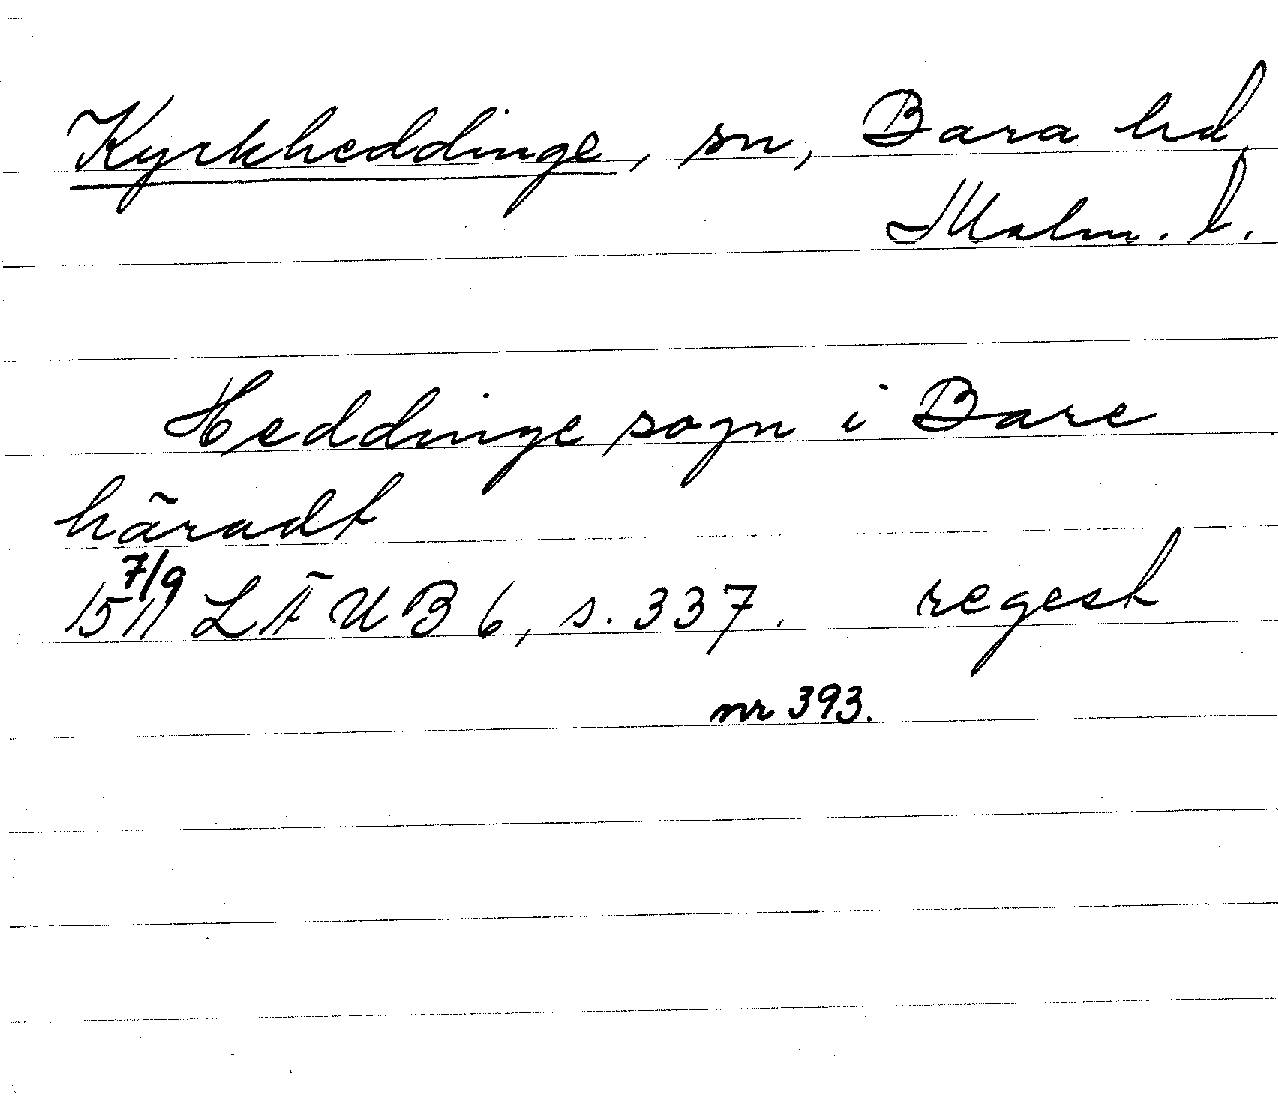 Kyrkheddinge, sn, Bara hd,
Malm. l.
Heddinge sogn i Bare
häradt
7/9
1511 LÄUB 6, s. 337. regest
nr 393.